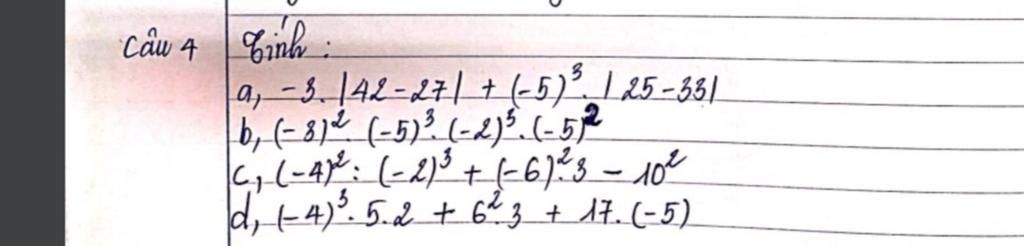 Câu 4 Tính :
a, -3. |42-27| + (-5)³. |25-33|
b, (-8)². (-5)³. (-2)³. (-5)²
c, (-4)² : (-2)³ + (-6)².3 - 10²
d, (-4)³. 5.2 + 6².3 + 17. (-5)